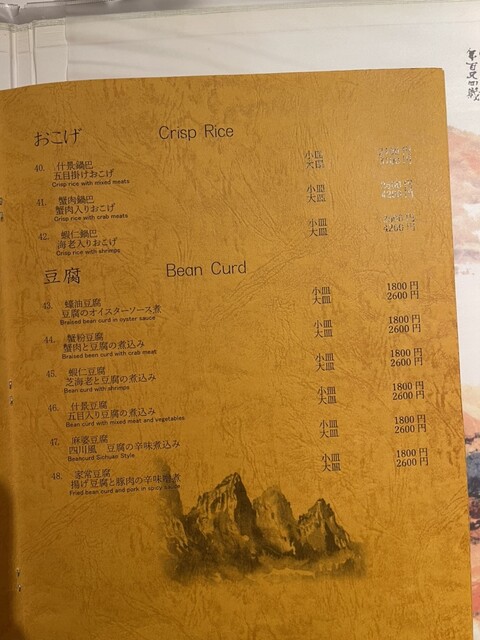 おこげ Crisp Rice
40. 什景鍋巴 小皿
五目掛けおこげ 大皿
Crisp rice with mixed meats
41. 蟹肉鍋巴 小皿
蟹肉入りおこげ 大皿
Crisp rice with crab meats
42. 蝦仁鍋巴 小皿
海老入りおこげ 大皿 4200円
Crisp rice with shrimps
豆腐 Bean Curd
43. 蠔油豆腐 小皿 1800円
豆腐のオイスターソース煮 大皿 2600円
Braised bean curd in oyster sauce
44. 蟹粉豆腐 小皿 1800円
蟹肉と豆腐の煮込み 大皿 2600円
Braised bean curd with crab meat
45. 蝦仁豆腐 小皿 1800円
芝海老と豆腐の煮込み 大皿 2600円
Bean curd with shrimps
46. 什景豆腐 小皿 1800円
五目入り豆腐の煮込み 大皿 2600円
Bean curd with mixed meat and vegetables
47. 麻婆豆腐 小皿 1800円
四川風 豆腐の辛味煮込み 大皿 2600円
Beancurd Sichuan Style
48. 家常豆腐 小皿 1800円
揚げ豆腐と豚肉の辛味噌煮 大皿 2600円
Fried bean curd and pork in spicy sauce